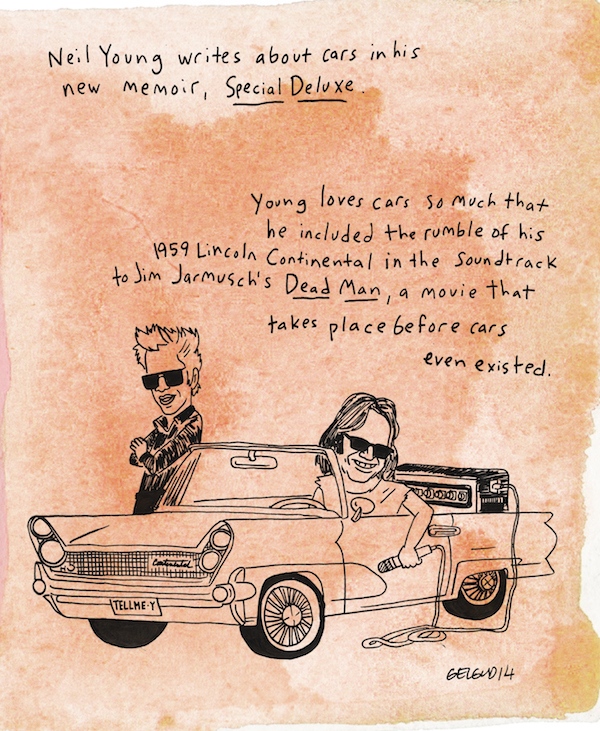 Neil Young writes about cars in his
new memoir, Special Deluxe.
Young loves cars so much that
he included the rumble of his
1959 Lincoln Continental in the soundtrack
to Jim Jarmusch's Dead Man, a movie that
takes place before cars
even existed.
Continental
TELLME·Y
GELGUD14